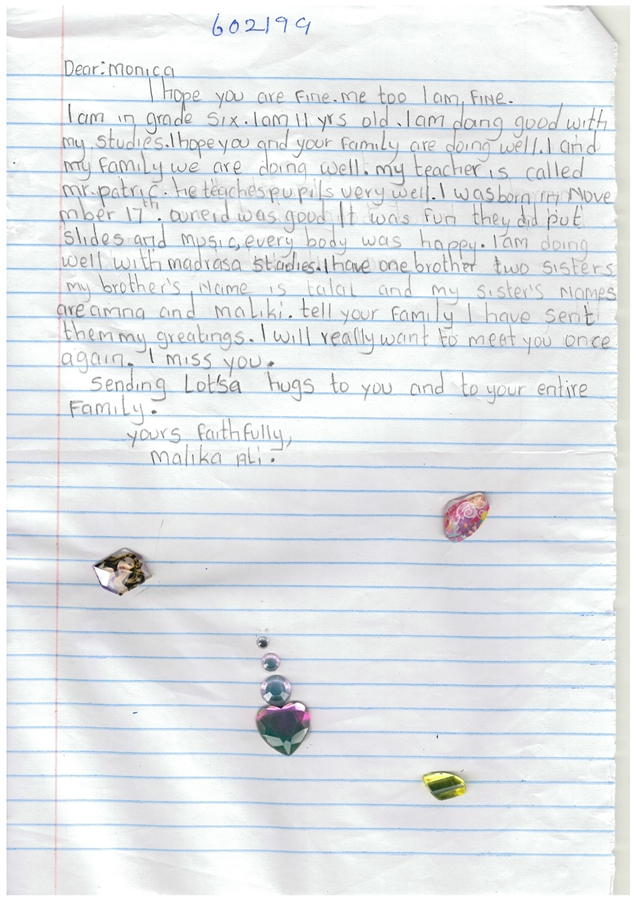 602199
Dear: monica
I hope you are Fine. me too I am, Fine.
I am in grade six. I am 11 yrs old. I am doing good with
my studies. I hope you and your Family are doing well. I and
my Family we are doing well. my teacher is called
mr. patric. he teaches pupils very well. I was born in Nove
mber 17th. our eid was good It was fun they did put
slides and music, every body was happy. I am doing
well with madrasa studies. I have one brother two sisters
my brother's Name is talal and my sister's Names
are amna and maliki. tell your Family I have sent
them my greatings. I will really want to meet you once
again. I miss you.
Sending Lot'sa hugs to you and to your entire
Family.
yours faithfully,
malika Ali.